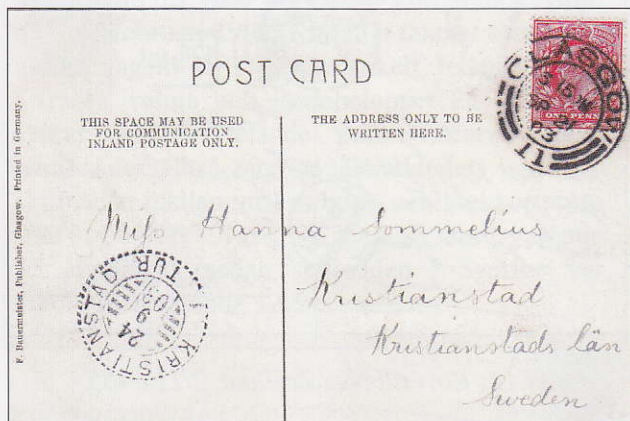 POST CARD
THIS SPACE MAY BE USED
FOR COMMUNICATION
INLAND POSTAGE ONLY.
THE ADDRESS ONLY TO BE
WRITTEN HERE.
F. Bauermeister, Publisher, Glasgow. Printed in Germany.
GLASGOW
21
03
11
ONE PENN
Miss Hanna Sommelius
Kristianstad
Kristianstads län
Sweden
KRISTIANSTAD
1 TUR
24
9
03